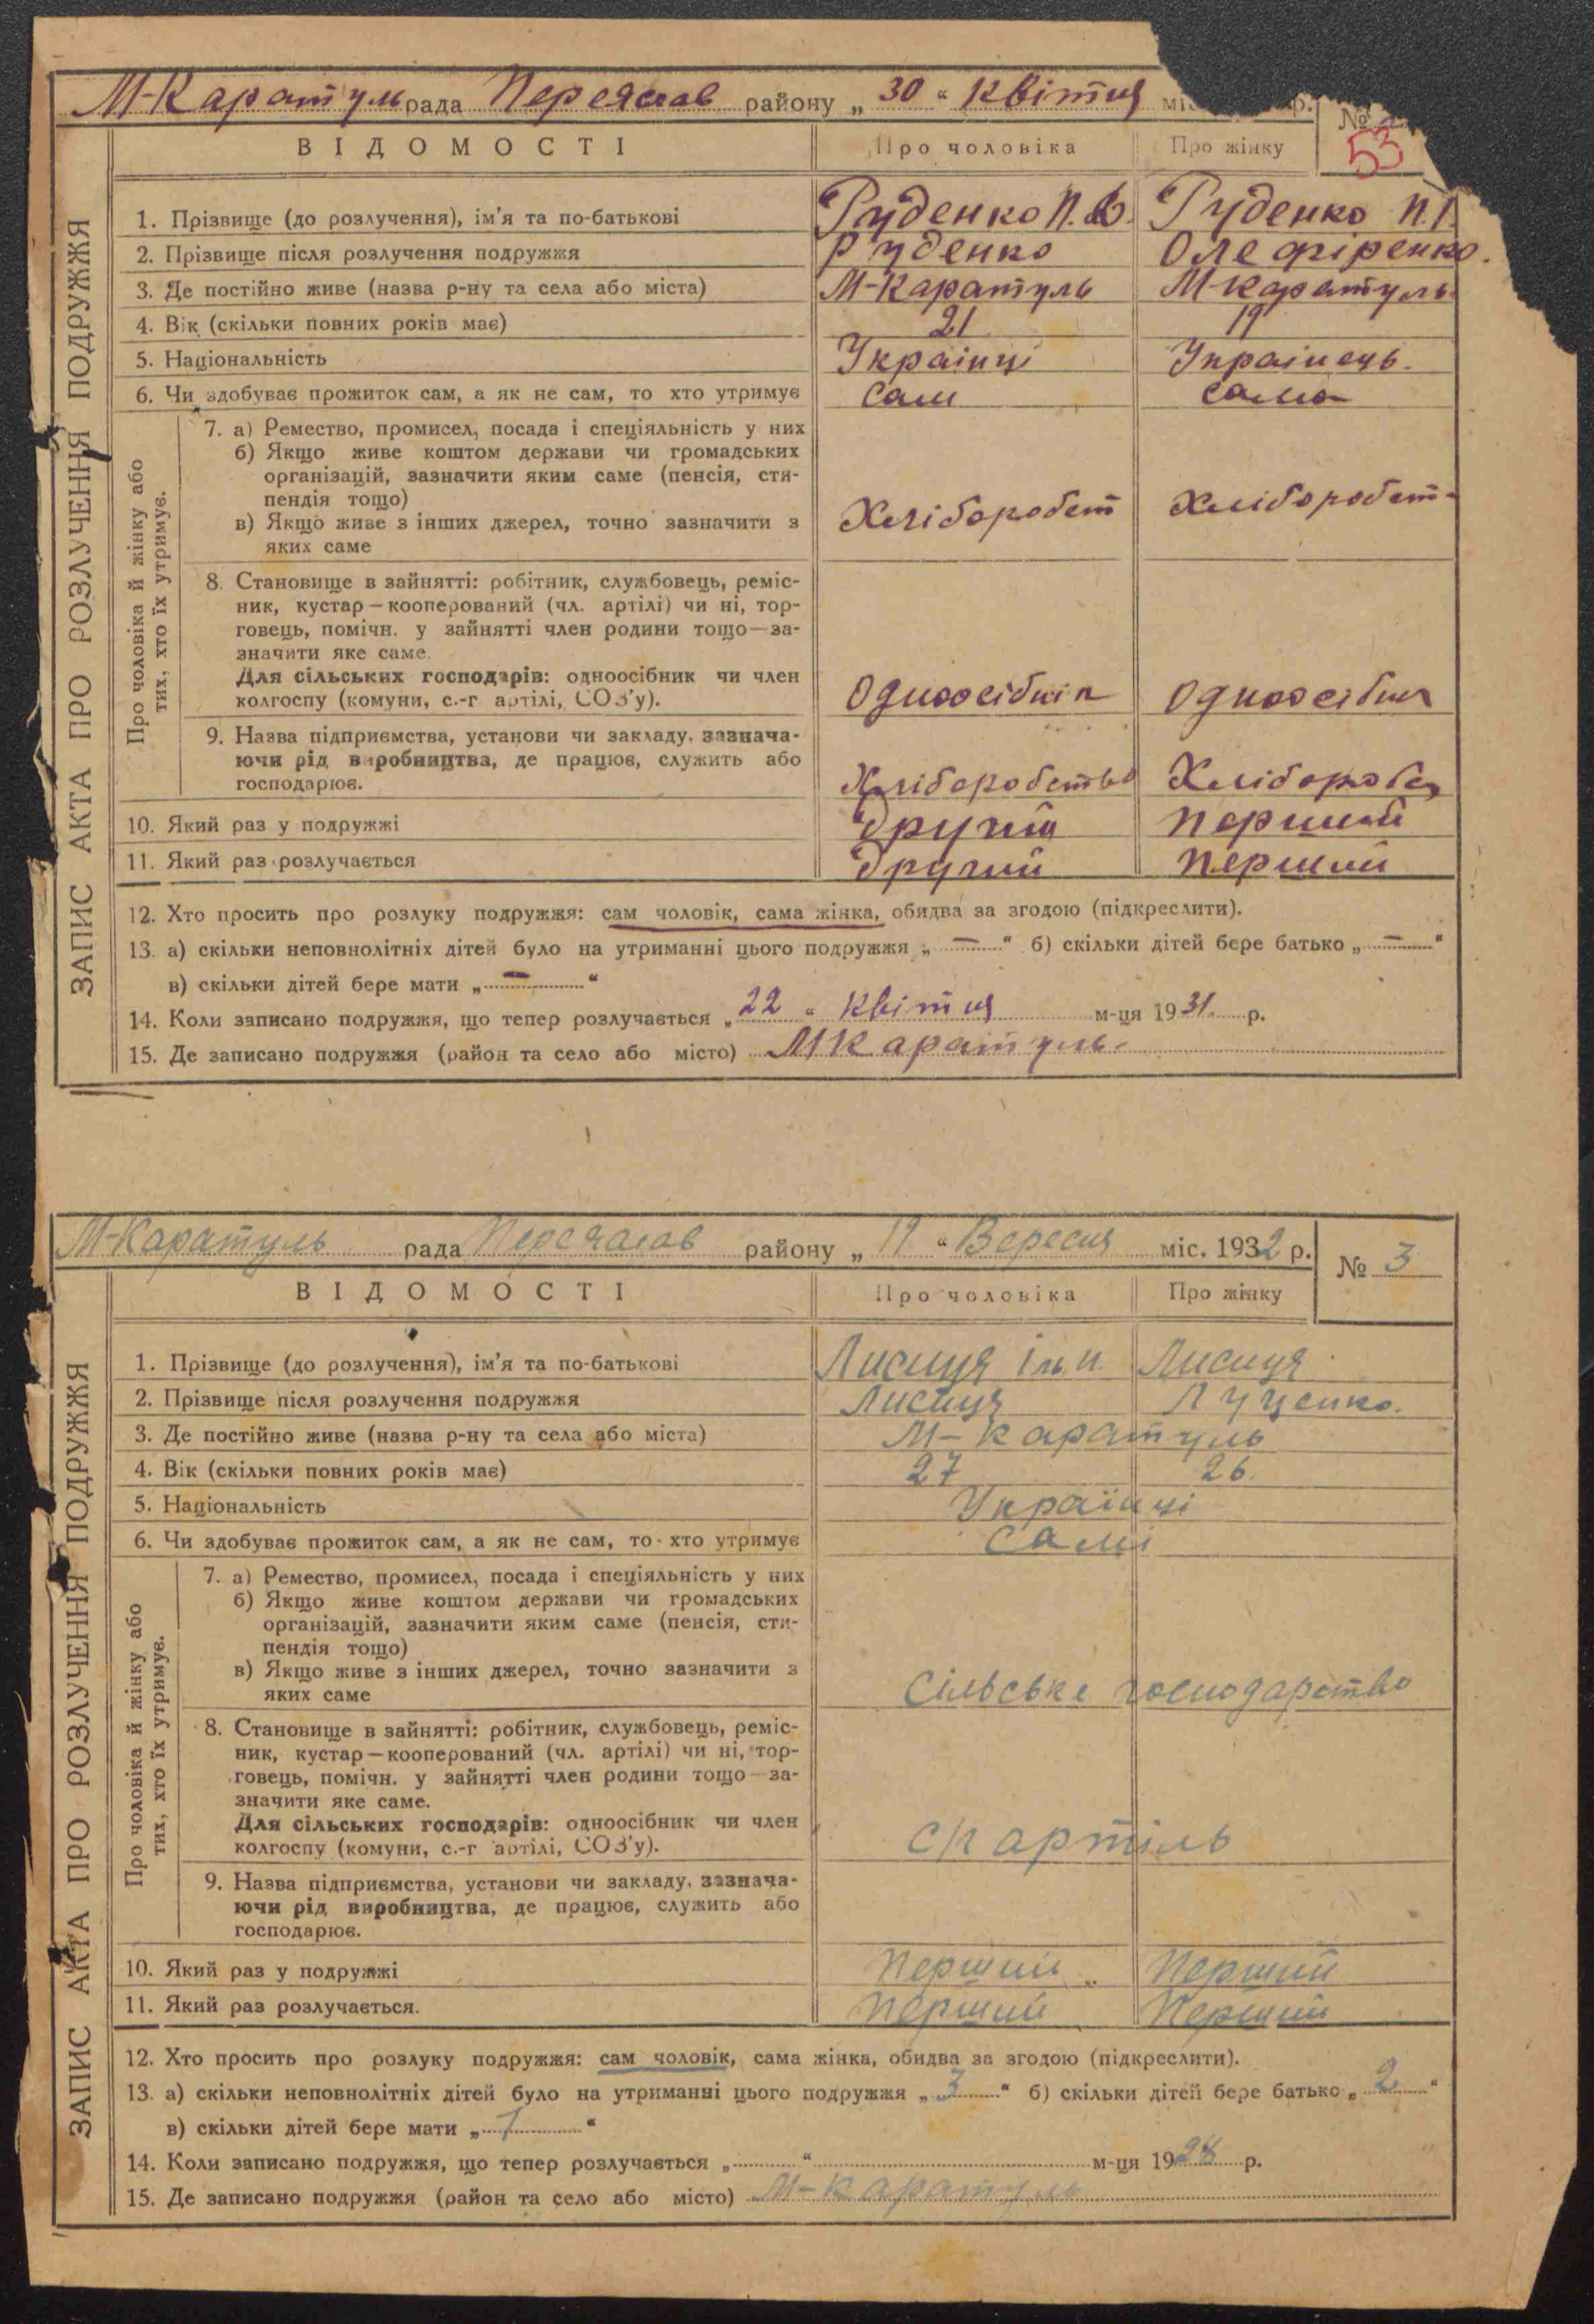 М-Каратуль рада Переяслав району „ 30 “ квітня міс. р.
№
53
ВІДОМОСТІ Про чоловіка Про жінку
ЗАПИС АКТА ПРО РОЗЛУЧЕННЯ ПОДРУЖЖЯ
1. Прізвище (до розлучення), ім’я та по-батькові Руденко П. Руденко П.
2. Прізвище після розлучення подружжя Руденко Олефіренко.
3. Де постійно живе (назва р-ну та села або міста) М-Каратуль М-Каратуль
4. Вік (скільки повних років має) 21 19
5. Національність Українці Українець.
6. Чи здобуває прожиток сам, а як не сам, то хто утримує сам сама
Про чоловіка й жінку або
тих, хто їх утримує.
7. а) Ремество, промисел, посада і спеціяльність у них
б) Якщо живе коштом держави чи громадських
організацій, зазначити яким саме (пенсія, сти-
пендія тощо)
в) Якщо живе з інших джерел, точно зазначити з
яких саме Хліборобст Хліборобст-
8. Становище в зайнятті: робітник, службовець, реміс-
ник, кустар—кооперований (чл. артілі) чи ні, тор-
говець, помічн. у зайнятті член родини тощо—за-
значити яке саме.
Для сільських господарів: одноосібник чи член
колгоспу (комуни, с.-г артілі, СОЗ’у). Одноосібник Одноосібник
9. Назва підприємства, установи чи закладу, зазнача-
ючи рід виробництва, де працює, служить або
господарює. Хліборобство Хлібороб
10. Який раз у подружжі другий перший
11. Який раз розлучається другий перший
12. Хто просить про розлуку подружжя: сам чоловік, сама жінка, обидва за згодою (підкреслити).
13. а) скільки неповнолітніх дітей було на утриманні цього подружжя „ — “ б) скільки дітей бере батько „ — “
в) скільки дітей бере мати „ — “
14. Коли записано подружжя, що тепер розлучається „ 22 “ квітня м-ця 1931. р.
15. Де записано подружжя (район та село або місто) М К аратуль.
М-Каратуль рада Переяслав району „ 19 “ Вересня міс. 1932 р.
№ 3
ВІДОМОСТІ Про чоловіка Про жінку
ЗАПИС АКТА ПРО РОЗЛУЧЕННЯ ПОДРУЖЖЯ
1. Прізвище (до розлучення), ім’я та по-батькові Лисиця Лисиця
2. Прізвище після розлучення подружжя Лисиця Луценко.
3. Де постійно живе (назва р-ну та села або міста) М-Каратуль
4. Вік (скільки повних років має) 27 26.
5. Національність Українці
6. Чи здобуває прожиток сам, а як не сам, то хто утримує Самі
Про чоловіка й жінку або
тих, хто їх утримує.
7. а) Ремество, промисел, посада і спеціяльність у них
б) Якщо живе коштом держави чи громадських
організацій, зазначити яким саме (пенсія, сти-
пендія тощо)
в) Якщо живе з інших джерел, точно зазначити з
яких саме Сільське господарство
8. Становище в зайнятті: робітник, службовець, реміс-
ник, кустар—кооперований (чл. артілі) чи ні, тор-
говець, помічн. у зайнятті член родини тощо—за-
значити яке саме.
Для сільських господарів: одноосібник чи член
колгоспу (комуни, с.-г артілі, СОЗ’у). с/г артіль
9. Назва підприємства, установи чи закладу, зазнача-
ючи рід виробництва, де працює, служить або
господарює.
10. Який раз у подружжі Перший Перший
11. Який раз розлучається. Перший Перший
12. Хто просить про розлуку подружжя: сам чоловік, сама жінка, обидва за згодою (підкреслити).
13. а) скільки неповнолітніх дітей було на утриманні цього подружжя „ 3 “ б) скільки дітей бере батько „ 2 “
в) скільки дітей бере мати „ 1 “
14. Коли записано подружжя, що тепер розлучається „ “ м-ця 1928 р.
15. Де записано подружжя (район та село або місто) М-Каратуль